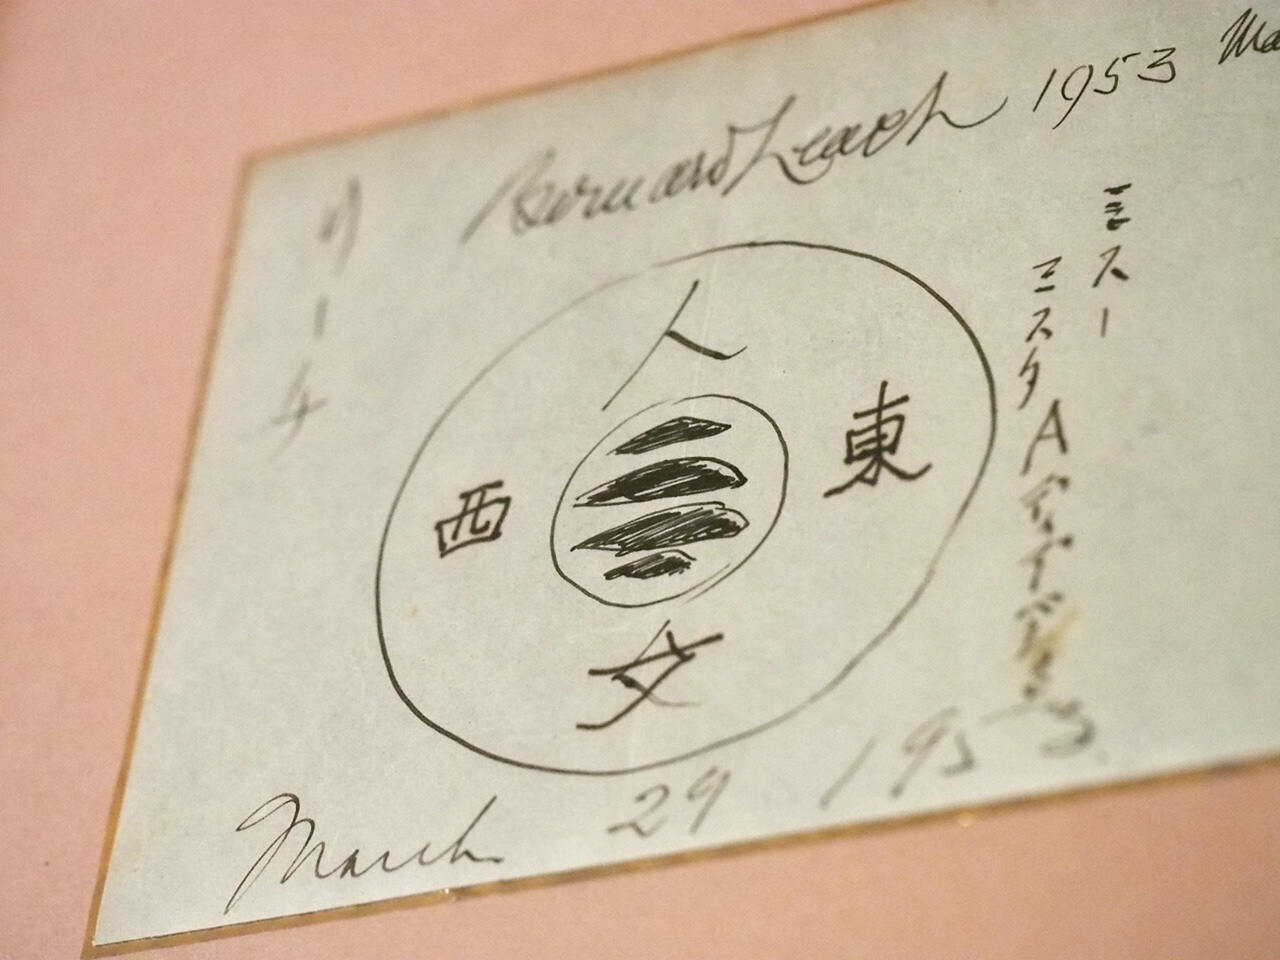 Bernard Leach 1953 Ma
リーチ
人
東
西
文
ミスー
ミスタ A
March 29 1953